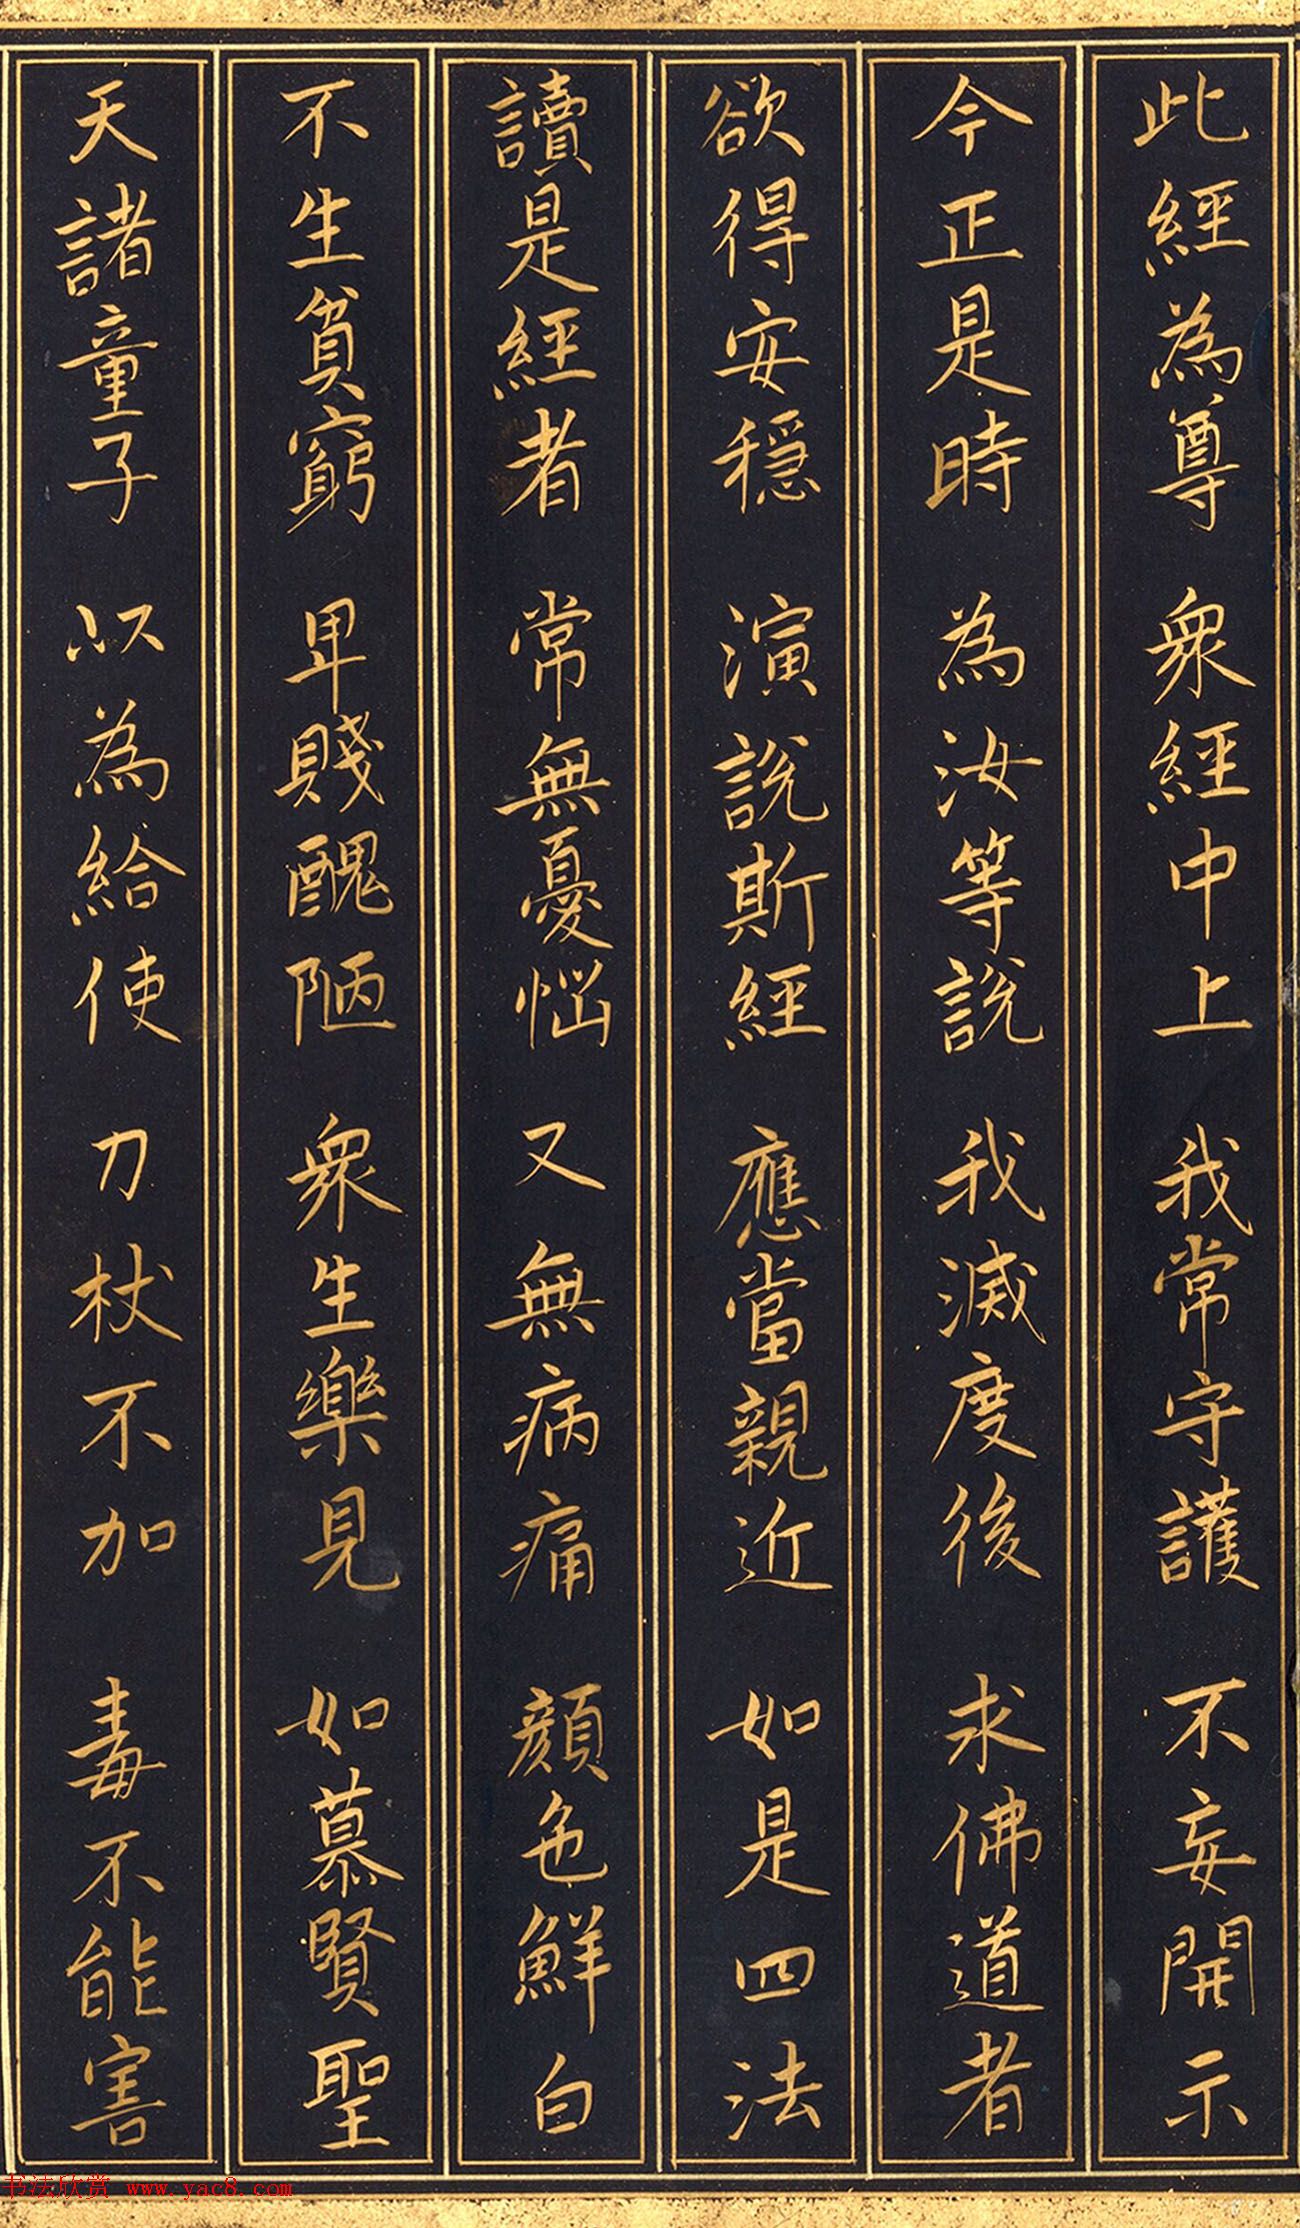 此經為尊 眾經中上 我常守護 不妄開示
今正是時 為汝等說 我滅度後 求佛道者
欲得安穩 演說斯經 應當親近 如是四法
讀是經者 常無憂惱 又無病痛 顏色鮮白
不生貧窮 卑賤醜陋 眾生樂見 如慕賢聖
天諸童子 以為給使 刀杖不加 毒不能害
书法欣赏 www.yac8.com